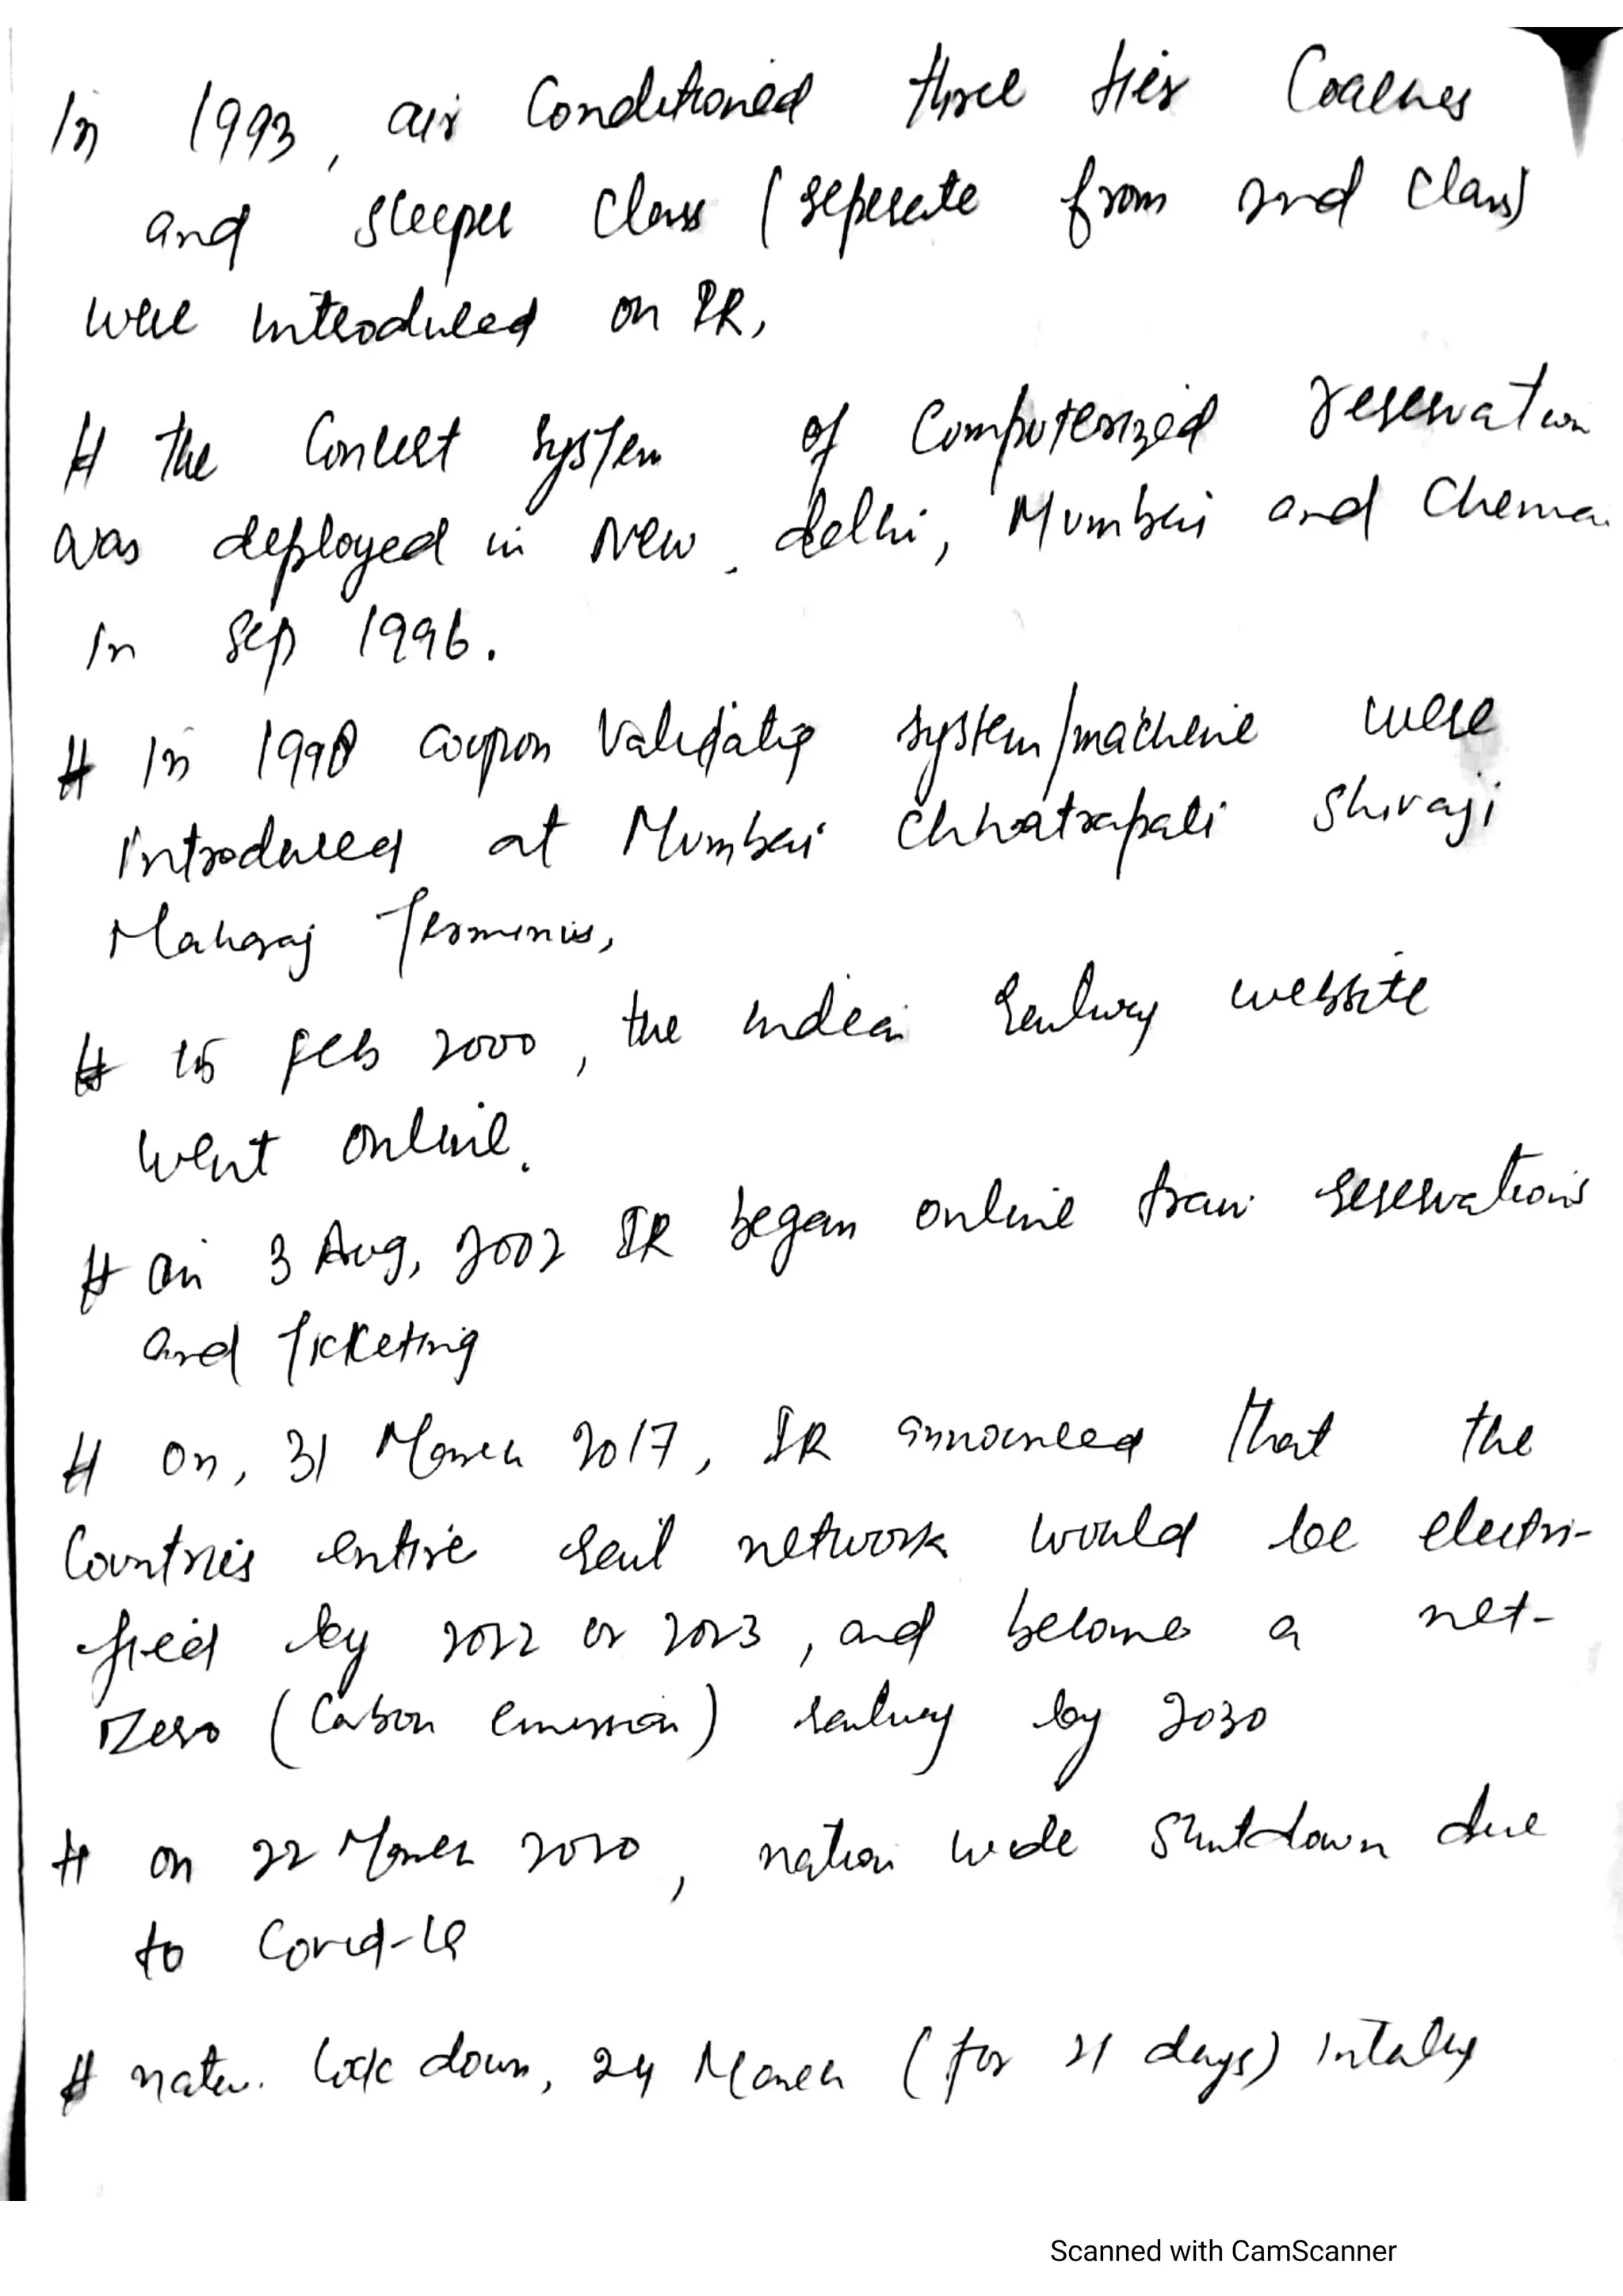 In 1993, air Conditioned three tier Coaches
and sleeper Class (seperate from 2nd Class)
were introduced on IR,
# the Concert system of Computerized reservation
was deployed in New delhi, Mumbai and Chenna
in Sep 1996.
# In 1998 coupon Validatig system/machine were
introduced at Mumbai Chhatrapati Shivaji
Maharaj Terminus,
# 15 feb 2000, the indian railway website
went online.
# On 3 Aug, 2002 IR began online train reservations
and Ticketing
# On, 31 March 2017, IR announced that the
Countries entire rail network would be electri-
fied by 2022 or 2023, and become a net-
Zero (Carbon emission) railway by 2030
# on 22 March 2020, nation wide Shutdown due
to Covid-19
# lock down, 24 March (for 21 days) Intially
Scanned with CamScanner